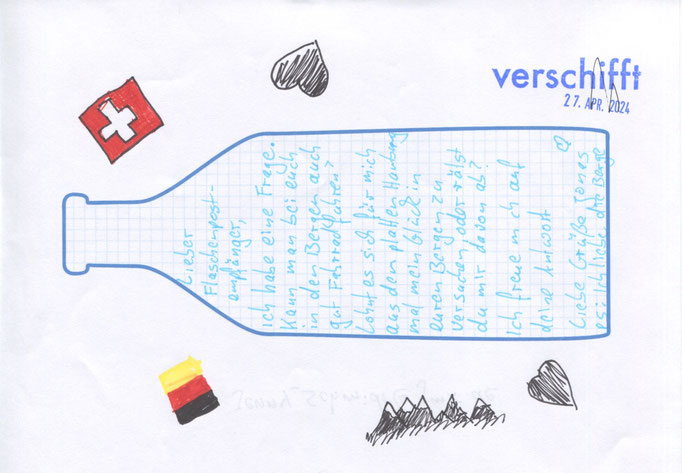 verschifft
27. APR. 2024
Lieber
Flaschenpost-
empfänger,
ich habe eine Frage.
Kann man bei euch
in den Bergen auch
gut Fahrrad fahren?
Lohnt es sich für mich
aus dem platten Hamburg
mal mein Glück in
euren Bergen zu
versuchen oder rätst
du mir davon ab?
Ich freue mich auf
deine Antwort
Liebe Grüße Jones
PS: ich liebe die Berge